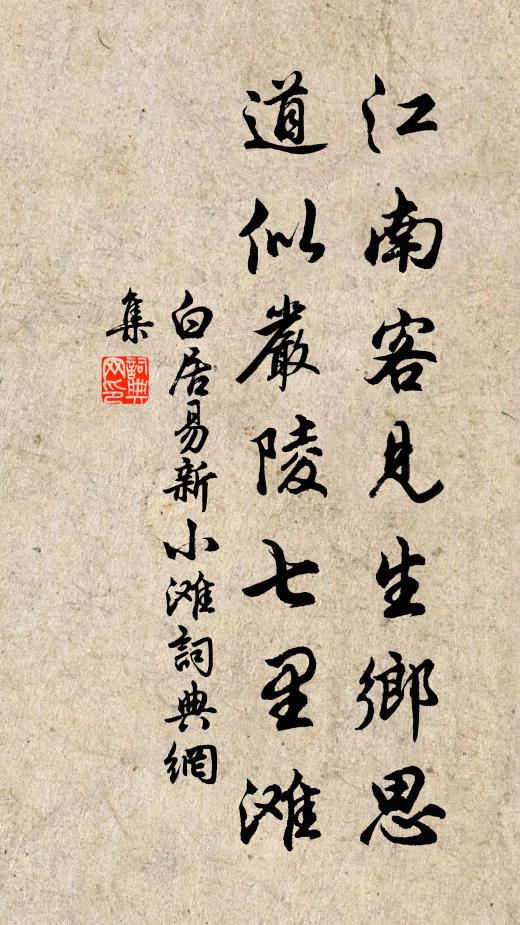 江南客見生鄉思
道似嚴陵七里滩
白居易新小滩詞典網
集
詞典
网印